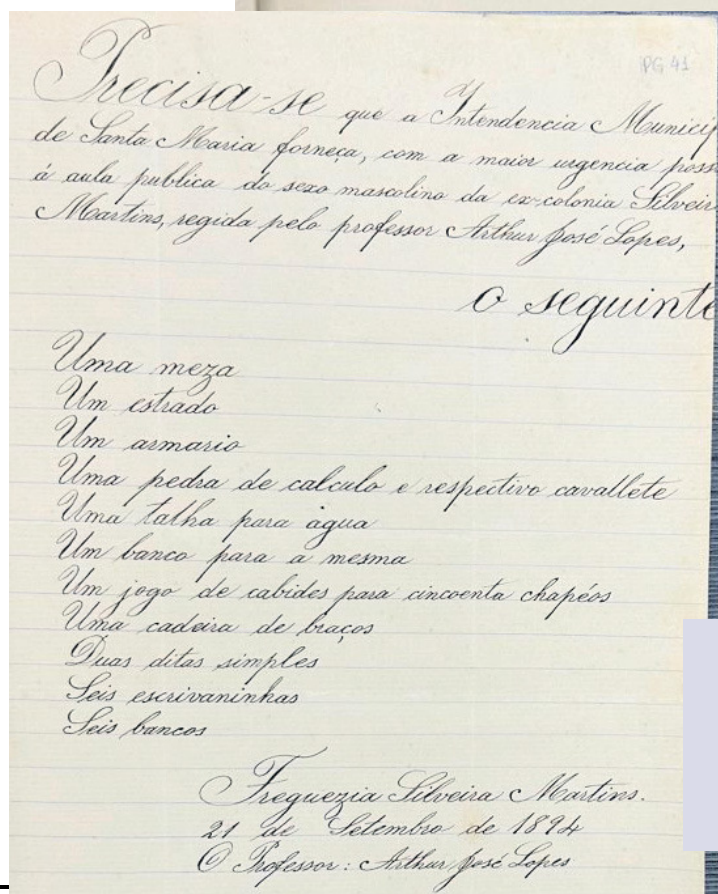 PG 41
Precisa-se que a Intendencia Municip
de Santa Maria forneça, com a maior urgencia poss
á aula publica do sexo mascolino da ex-colonia Silveir
Martins, regida pelo professor Arthur José Lopes,
o seguinte
Uma meza
Um estrado
Um armario
Uma pedra de calculo e respectivo cavallete
Uma talha para agua
Um banco para a mesma
Um jogo de cabides para cincoenta chapéos
Uma cadeira de braços
Duas ditas simples
Seis escrivaninhas
Seis bancos
Freguezia Silveira Martins.
21 de Setembro de 1894
O Professor: Arthur José Lopes